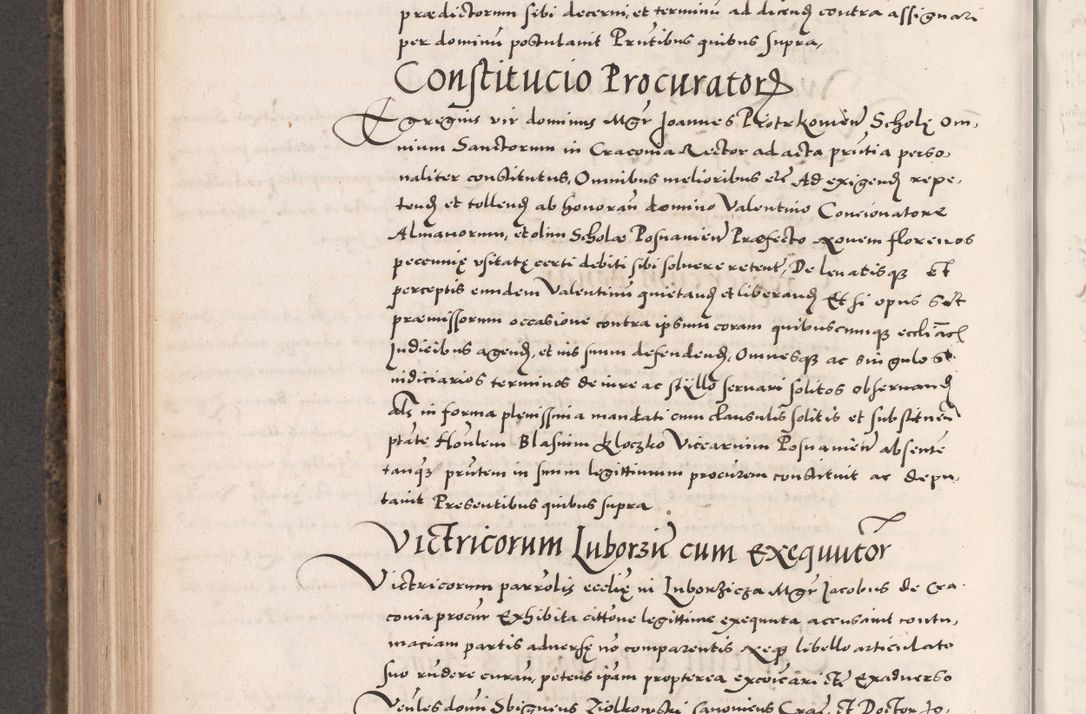 prædictorum sibi decerni, et terminũ ad dicendũ contra assignari
per dominũ postulavit Pruntibus quibus supra,
Constitucio Procurator
Egregius vir dominus Mgr Joannes Piotrkowień Scholę Om,
nium Sanctorum in Cracovia Rector ad acta prntia perso
naliter constitutus, Omnibus melioribus etc Ad exigend repe,
tend et tollend ab honoran domino Valentino Concionatore
Almanorum, et olim Scholæ Posnanien Præfecto novem florenos
pecunię usitatę certi debiti sibi solvere retent, De levatisque et
perceptis eundem Valentinũ quietand et liberand Et si opus est
præmissorum occasione contra ipsum coram quibuscunque eccli
Judicibus agend, et ius suum defendend, Omnesque ac singulos
iudiciarios terminos de iure ac stÿllo servari solitos observand
Als in forma plenissima mandati cum clausulis solitis et substituen
ptate Honlem Blasium Kloczko Vicearium Posnanien absente
tanq prntem in suum legittimum procurem constituit ac depu,
tavit Presentibus quibus supra
Victricorum Luborziń cum Exequutor
Victricorum parrolis ecclię in Luborzicza Mgr Jacobus de Cra
covia procur Exhibita cittone legittime exequuta accusavit contu,
maciam partis adversę no comparentis libello articulato
suo rudere curavĩ, petens ipam propterea excoicari etc Ex adverso
Venles domi Sbigneus Ziolkowski Canonicus Crac, et Doctor Jo,